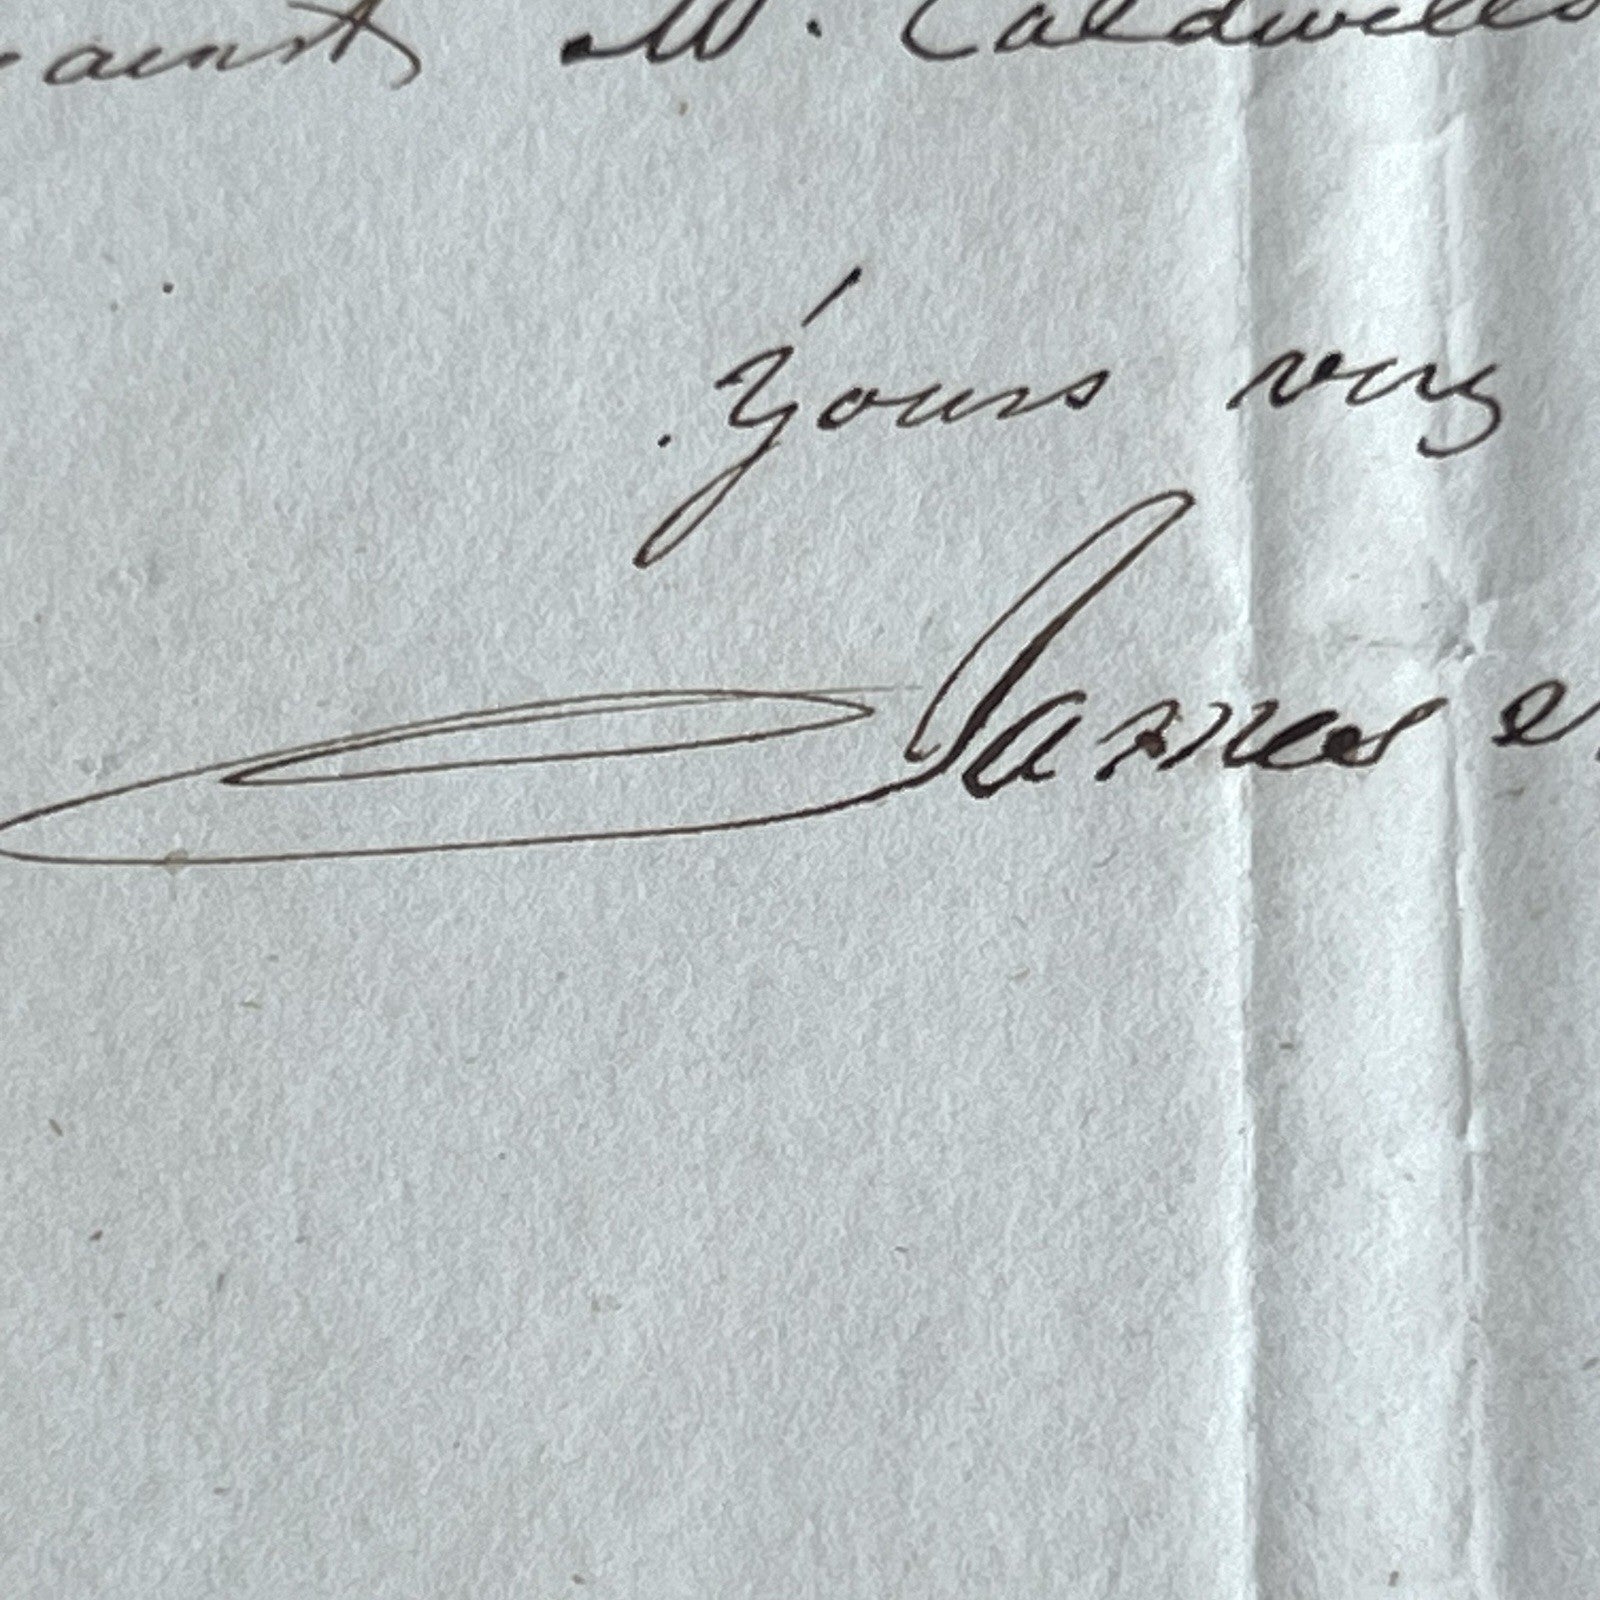 against M. Caldwells
Yours very
James